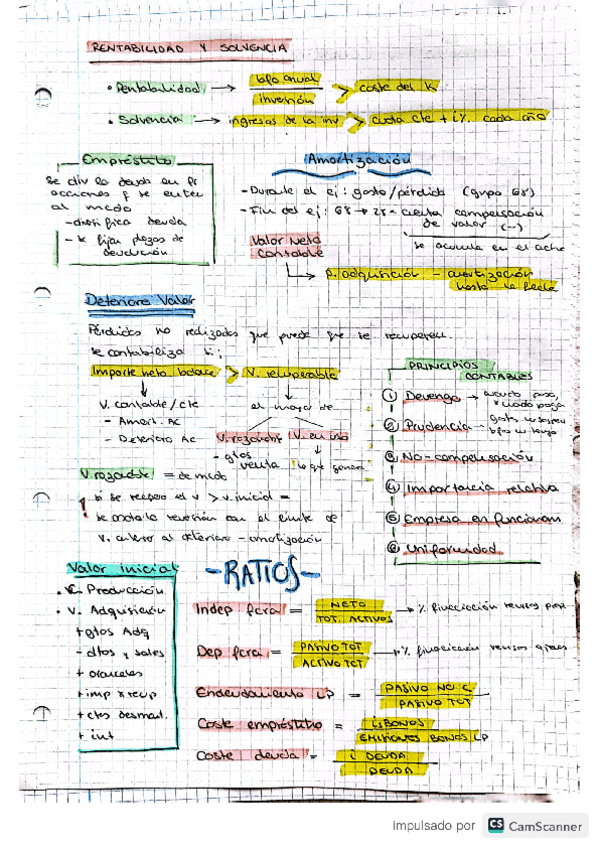 RENTABILIDAD Y SOLVENCIA
• Rentabilidad → bfo anual / inversión > coste del K
• Solvencia → ingresos de la inv > cuota cte + i% cada año
Empréstito
se div la deuda en
acciones y se
al mcdo
- diversifica deuda
- se fijan plazos de
devolución
Amortización
- Durante el ej: gasto/pérdida (grupo 68)
- Fin del ej: 68 → 28 = cuenta compensación
de valor (-)
se acumula en el
Valor Neto
Contable
P. adquisición - amortización
hasta la fecha
Deterioro Valor
Pérdidas no realizadas que puede que se recuperen.
se contabiliza si:
Importe neto balance > V. recuperable
V. contable/cte
- Amort. AC
- Deterioro AC
el mayor de
V. razonable
- gtos
venta
V. en uso
lo que genera
V. razonable = de mcdo
! si se recupera el V > v. inicial =
se contabiliza reversión con el límite de
v. anterior al deterioro - amortización
PRINCIPIOS
CONTABLES
① Devengo →
② Prudencia
③ No-compensación
④ Importancia relativa
⑤ Empresa en funcionam
⑥ Uniformidad
Valor inicial
• C. Producción
• V. Adquisición
+ gtos Adq
- dtos y
+ aranceles
+ imp x recup
+ ctos desmat.
+ int
-RATIOS-
Indep fcra = NETO / TOT. ACTIVOS → % financiación recursos prop
Dep fcra = PASIVO TOT / ACTIVO TOT → % financiación recursos ajenos
Endeudamiento LP = PASIVO NO C / PASIVO TOT
Coste empréstito = / EMISIONES BONOS LP
Coste deuda = i DEUDA / DEUDA
Impulsado por CS CamScanner